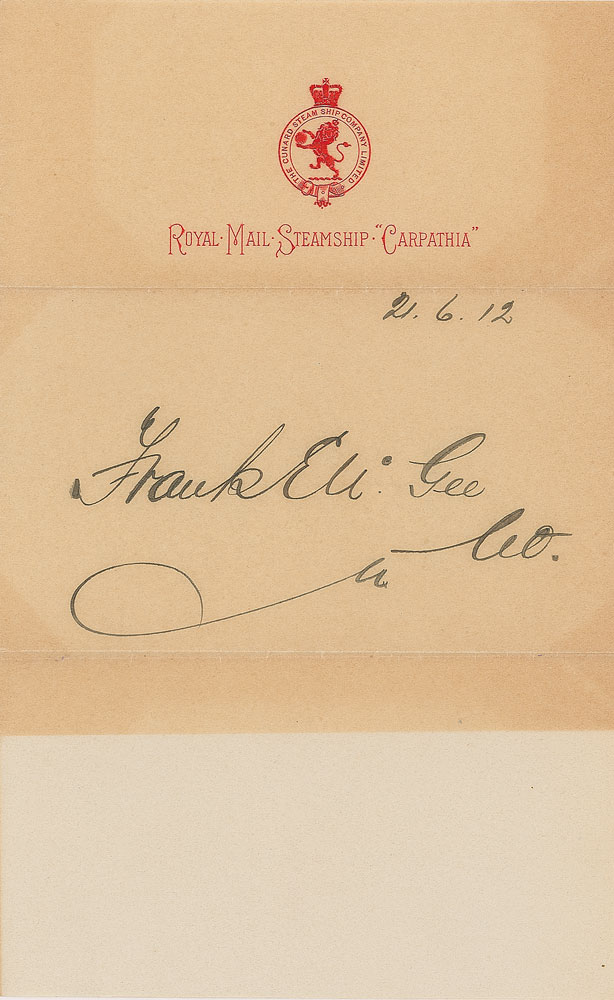 THE CUNARD STEAM SHIP COMPANY LIMITED
ROYAL·MAIL·STEAMSHIP·"CARPATHIA"
21. 6. 12
Frank Eli Gee